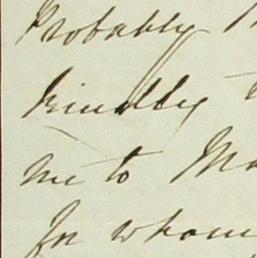 Probably
kindly
me to
for whom